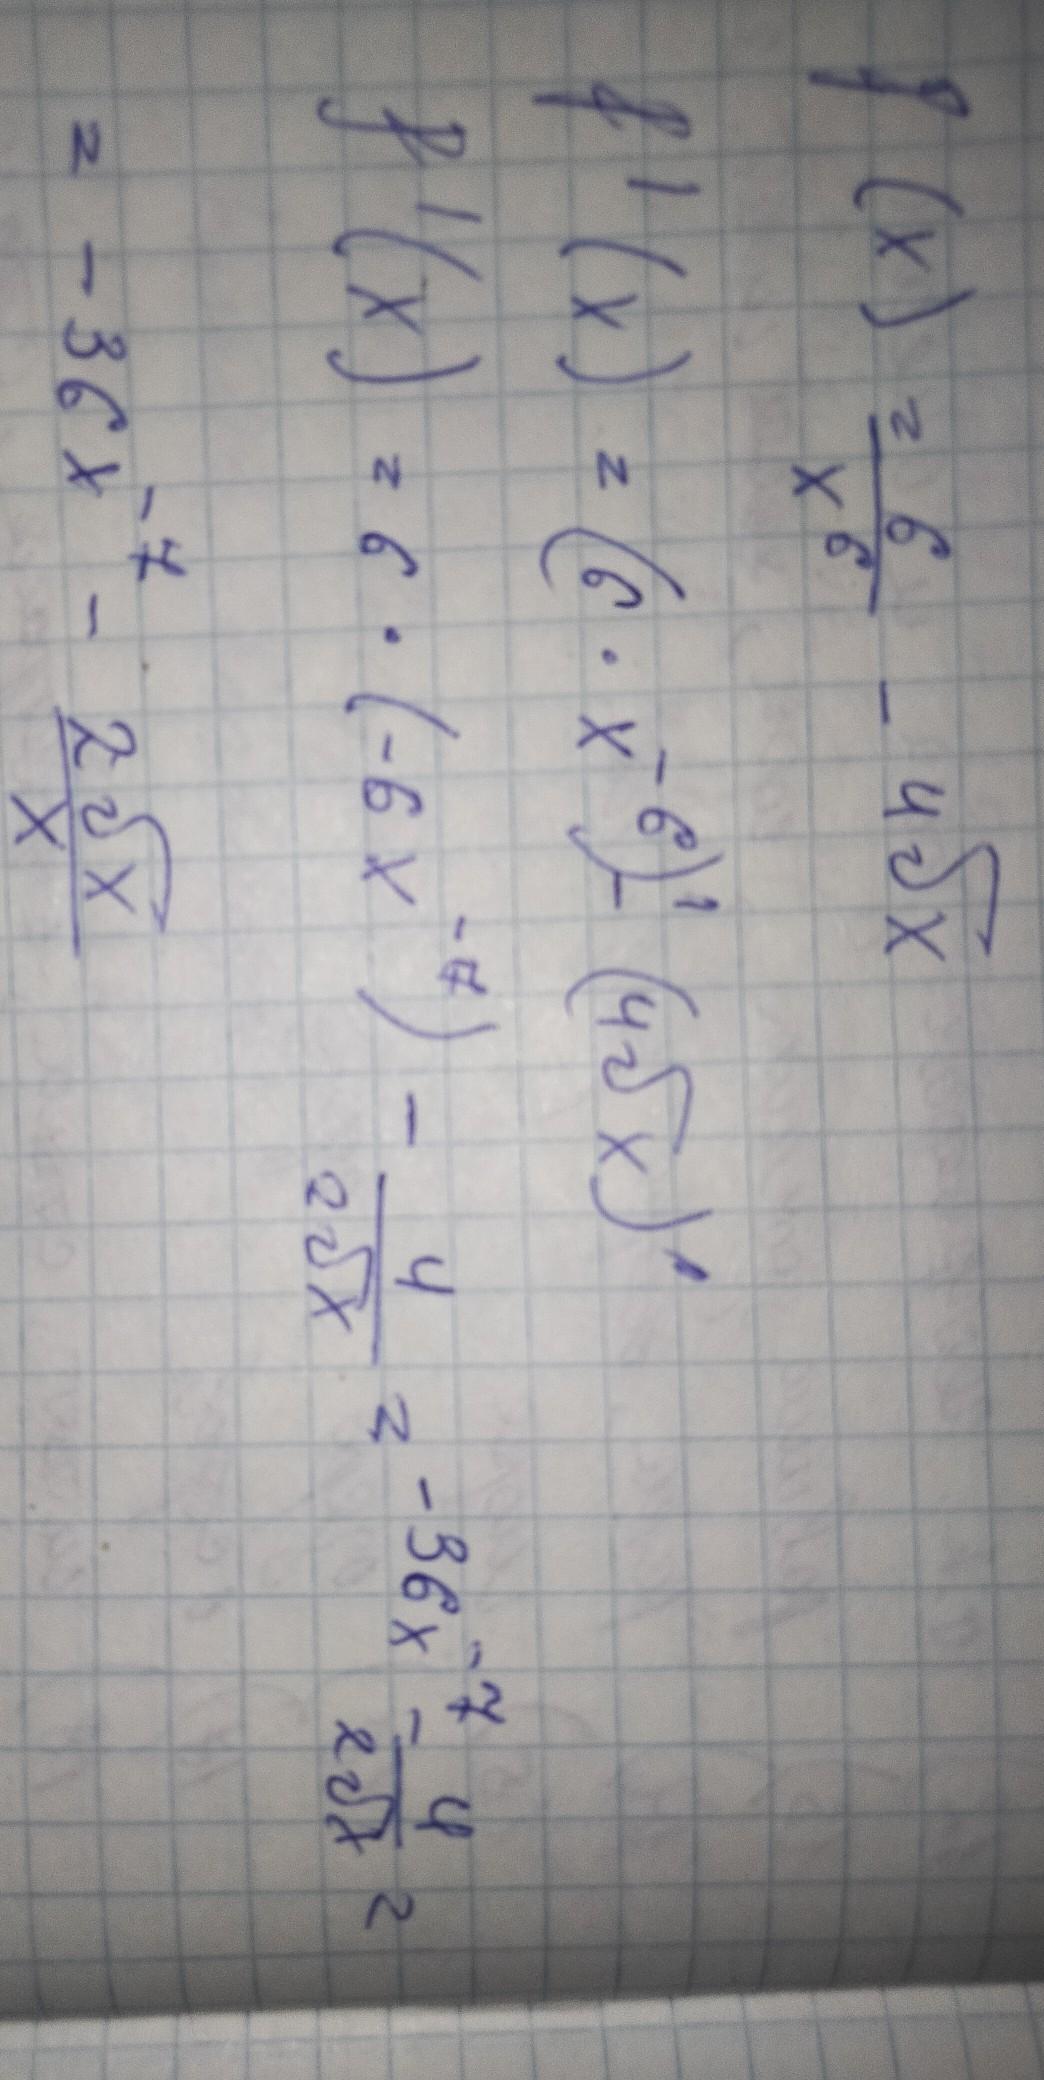 f(x) = 6/x⁶ - 4√x
f'(x) = (6 · x⁻⁶)' - (4√x)'
f'(x) = 6 · (-6x⁻⁷) - 4/2√x = -36x⁻⁷ - 4/2√x =
= -36x⁻⁷ - 2√x/x